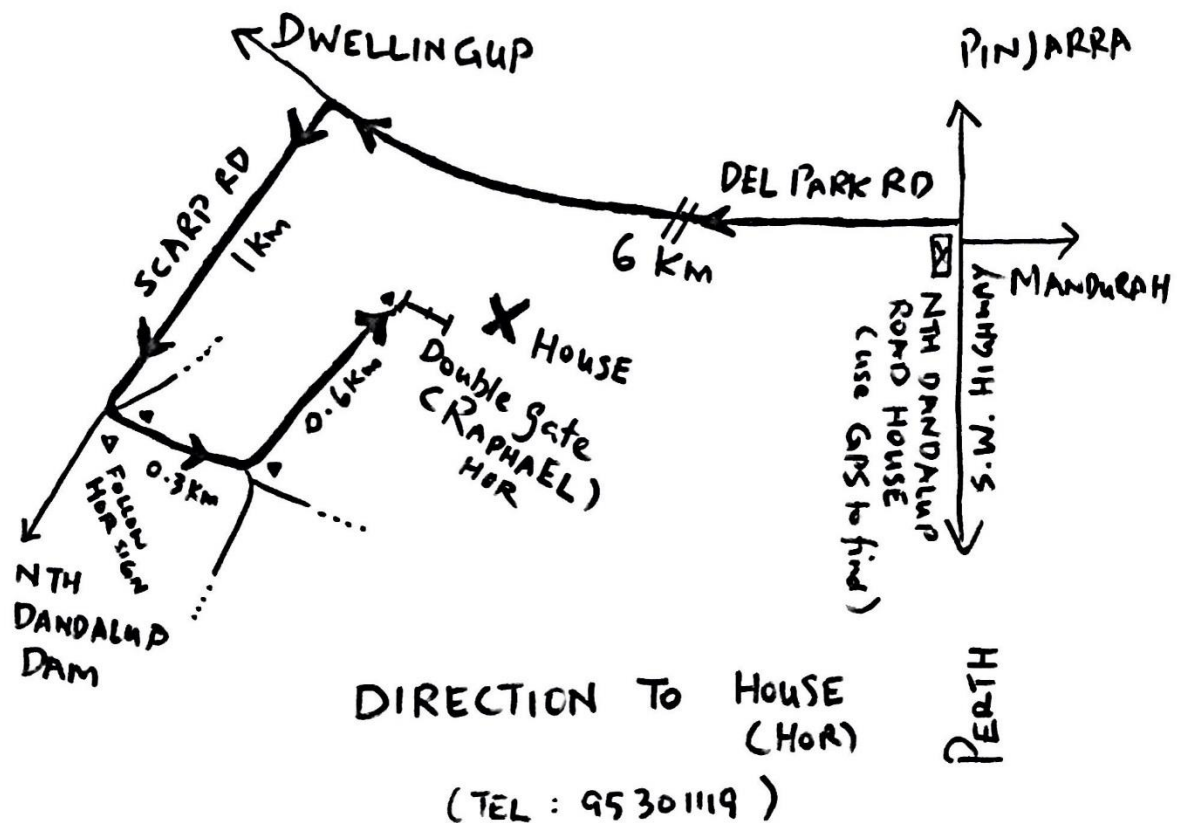 DWELLINGUP
PINJARRA
DEL PARK RD
6 Km
MANDURAH
S.W. HIGHWAY
NTH DANDALUP
ROAD HOUSE
(use GPS to find)
PERTH
SCARP RD
1 Km
0.3 Km
0.6 Km
X HOUSE
Double Gate
(RAPHAEL)
HOR
FOLLOW
HOR SIGN
NTH
DANDALUP
DAM
DIRECTION TO HOUSE
(HOR)
(TEL : 95301119)